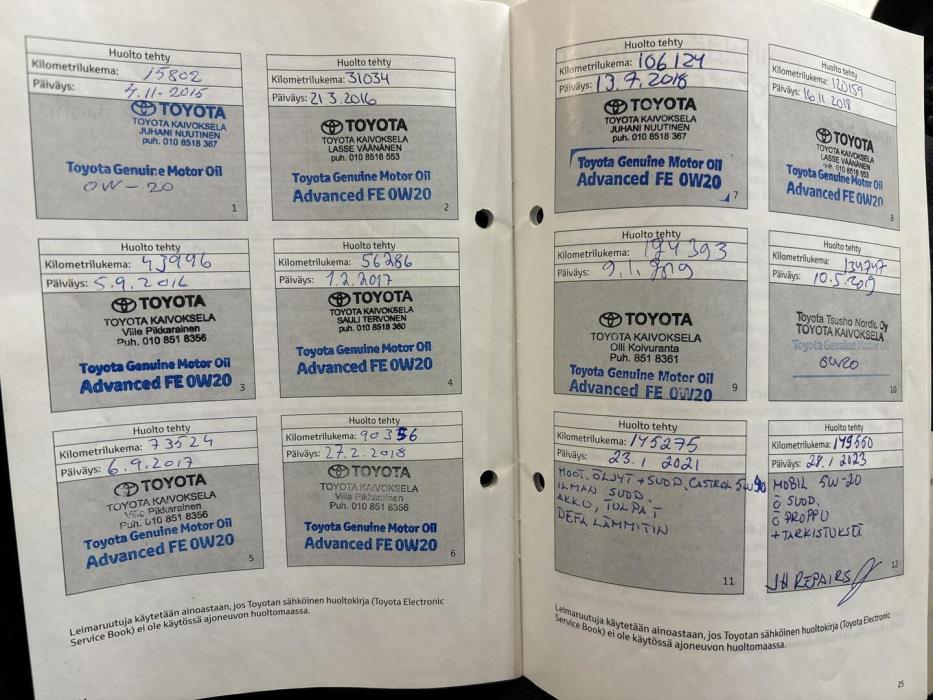 Huolto tehty
Kilometrilukema: 15802
Päiväys: 4.11-2015
TOYOTA
TOYOTA KAIVOKSELA
JUHANI NUUTINEN
puh. 010 8518 367
Toyota Genuine Motor Oil
0W-20
1
Huolto tehty
Kilometrilukema: 31034
Päiväys: 21.3.2016
TOYOTA
TOYOTA KAIVOKSELA
LASSE VÄÄNÄNEN
puh. 010 8518 553
Toyota Genuine Motor Oil
Advanced FE 0W20
2
Huolto tehty
Kilometrilukema: 43996
Päiväys: 5.9.2016
TOYOTA
TOYOTA KAIVOKSELA
Ville Pikkarainen
Puh. 010 851 8356
Toyota Genuine Motor Oil
Advanced FE 0W20
3
Huolto tehty
Kilometrilukema: 56286
Päiväys: 1.2.2017
TOYOTA
TOYOTA KAIVOKSELA
SAULI TERVONEN
puh. 010 8518 360
Toyota Genuine Motor Oil
Advanced FE 0W20
4
Huolto tehty
Kilometrilukema: 73524
Päiväys: 6.9.2017
TOYOTA
TOYOTA KAIVOKSELA
Ville Pikkarainen
Puh. 010 851 8356
Toyota Genuine Motor Oil
Advanced FE 0W20
5
Huolto tehty
Kilometrilukema: 90356
Päiväys: 27.2.2018
TOYOTA
TOYOTA KAIVOKSELA
Ville Pikkarainen
Puh. 010 851 8356
Toyota Genuine Motor Oil
Advanced FE 0W20
6
Leimaruutuja käytetään ainoastaan, jos Toyotan sähköinen huoltokirja (Toyota Electronic
Service Book) ei ole käytössä ajoneuvon huoltomaassa.
Huolto tehty
Kilometrilukema: 106124
Päiväys: 13.7.2018
TOYOTA
TOYOTA KAIVOKSELA
JUHANI NUUTINEN
puh. 010 8518 367
Toyota Genuine Motor Oil
Advanced FE 0W20
7
Huolto tehty
Kilometrilukema: 120159
Päiväys: 16.11.2018
TOYOTA
TOYOTA KAIVOKSELA
LASSE VÄÄNÄNEN
puh. 010 8518 553
Toyota Genuine Motor Oil
Advanced FE 0W20
8
Huolto tehty
Kilometrilukema:
Päiväys: 9.1.2019
TOYOTA
TOYOTA KAIVOKSELA
Olli Koivuranta
Puh. 851 8361
Toyota Genuine Motor Oil
Advanced FE 0W20
9
Huolto tehty
Kilometrilukema: 134747
Päiväys: 10.5.2019
Toyota Tsusho Nordic Oy
TOYOTA KAIVOKSELA
Toyota Genuine Motor Oil
0W20
10
Huolto tehty
Kilometrilukema: 145275
Päiväys: 23.1 2021
MOOT. ÖLJYT + SUOD. CASTROL
ILMAN SUOD.
AKKU, TOLPAT
DEFA LÄMMITIN
11
Huolto tehty
Kilometrilukema: 149550
Päiväys: 28.1 2023
MOBIL 5W-20
Ö SUOD.
Ö PROPPU
+TARKISTUKSET
JH REPAIRS
12
Leimaruutuja käytetään ainoastaan, jos Toyotan sähköinen huoltokirja (Toyota Electronic
Service Book) ei ole käytössä ajoneuvon huoltomaassa.
25